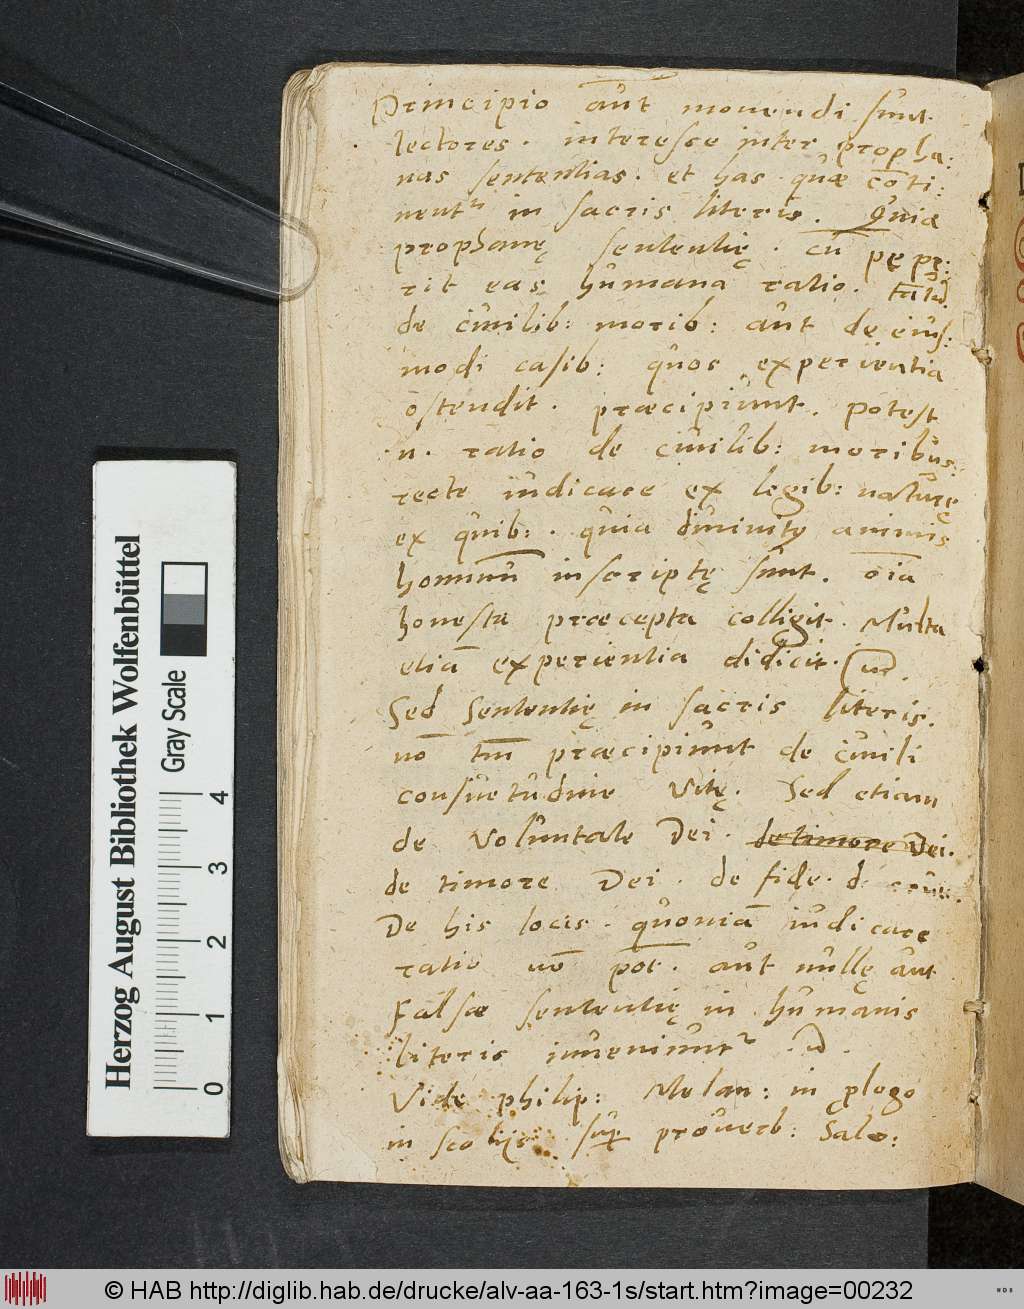 Principio aūt mouendi sunt
lectores. interesse inter propha:
nas sententias. et has quæ cōti:
nent^r in sacris literis. Quia
prophanę sententię. cū pepe:
rit eas humana ratio.
de ciuilib: morib: aut de eius:
modi casib: quos experientia
ostendit. præcipiunt. potest
n. ratio de ciuilib: moribus.
recte iudicare ex legib: naturę
ex quib:. quia diuinitꝰ animis
hominū inscriptę sunt. oīa
honesta præcepta colligit. Multa
etiā experientia didicit.
Sed Sententię in sacris literis.
nō tm̄ præcipiunt de ciuili
consuetudine vitę. Sed etiam
de Voluntate Dei. de timore Dei.
de timore Dei. de fide.
De his locis. quoniā iudicare
ratio nō pōt. aut nullę aut
Falsæ sententię in humanis
literis inueniunt^r.
Vide philip: Melan: in plogo
in scolijs sup prouerb: Salo:
Herzog August Bibliothek Wolfenbüttel
Gray Scale
0 1 2 3 4
© HAB http://diglib.hab.de/drucke/alv-aa-163-1s/start.htm?image=00232